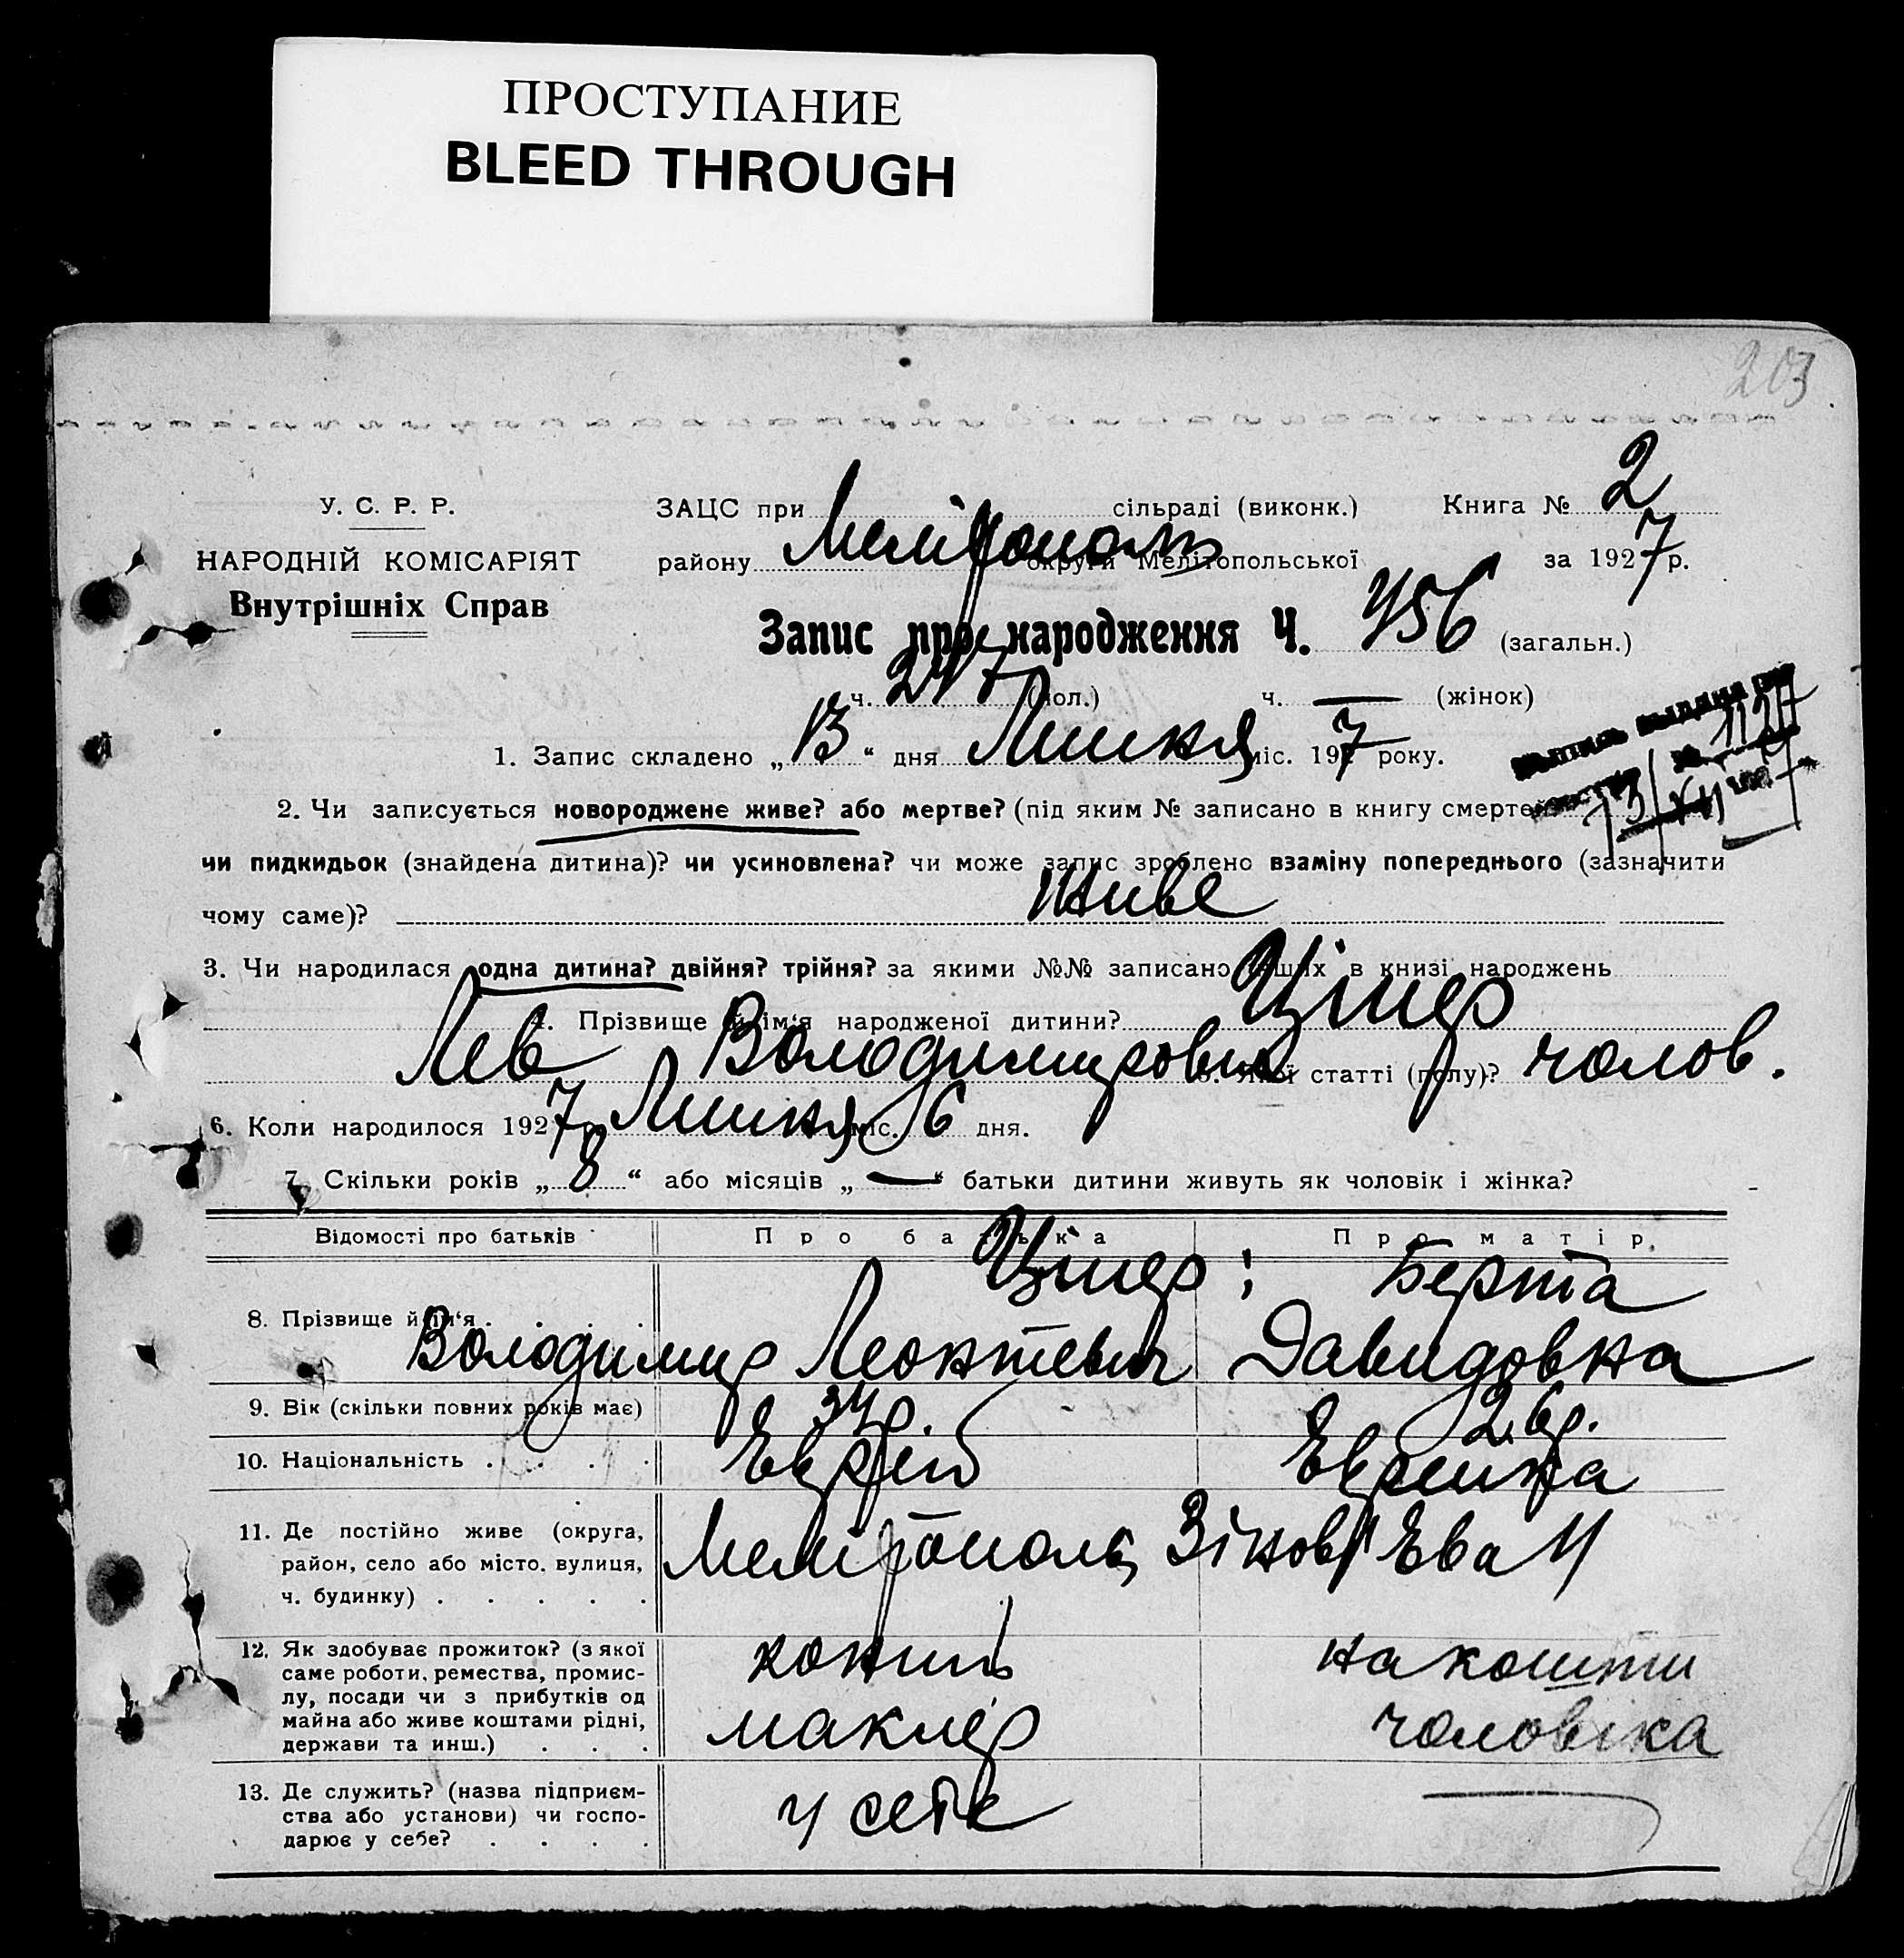 ПРОСТУПАНИЕ
BLEED THROUGH
203
У. С. Р. Р.
НАРОДНІЙ КОМІСАРІЯТ
Внутрішніх Справ
ЗАЦС при сільраді (виконк.) Книга № 2
району Мелітополь округи Мелітопольської за 1927 р.
Запис про народження Ч. 456 (загальн.)
ч. (чол.) ч. — (жінок)
1. Запис складено „13“ дня Липня міс. 1927 року.
2. Чи записується новороджене живе? або мертве? (під яким № записано в книгу смертей
чи пидкидьок (знайдена дитина)? чи усиновлена? чи може запис зроблено взаміну попереднього (зазначити
чому саме)? Живе
3. Чи народилася одна дитина? двійня? трійня? за якими №№ записано інших в книзі народжень
4. Прізвище й ім'я народженої дитини? Ціпер
Лев Володимирович 5. Якої статті (полу)? чолов.
6. Коли народилося 1927 р. Липня міс. 6 дня.
7. Скільки років „8“ або місяців „—“ батьки дитини живуть як чоловік і жінка?
Відомості про батьків Про батька Про матір
8. Прізвище й ім'я . Ціпер; Берта
Володимир Леонтевич Давидовна
9. Вік (скільки повних років має) 34 р. 26 р.
10. Національність . . . . Еврей Еврейка
11. Де постійно живе (округа,
район, село або місто, вулиця,
ч. будинку) . . . . .
Мелітополь,
12. Як здобуває прожиток? (з якої
саме роботи, ремества, промис-
лу, посади чи з прибутків од
майна або живе коштами рідні,
держави та инш.) . . .
маклер
на кошти
чоловіка
13. Де служить? (назва підприєм-
ства або установи) чи госпо-
дарює у себе? . . . .
у себе